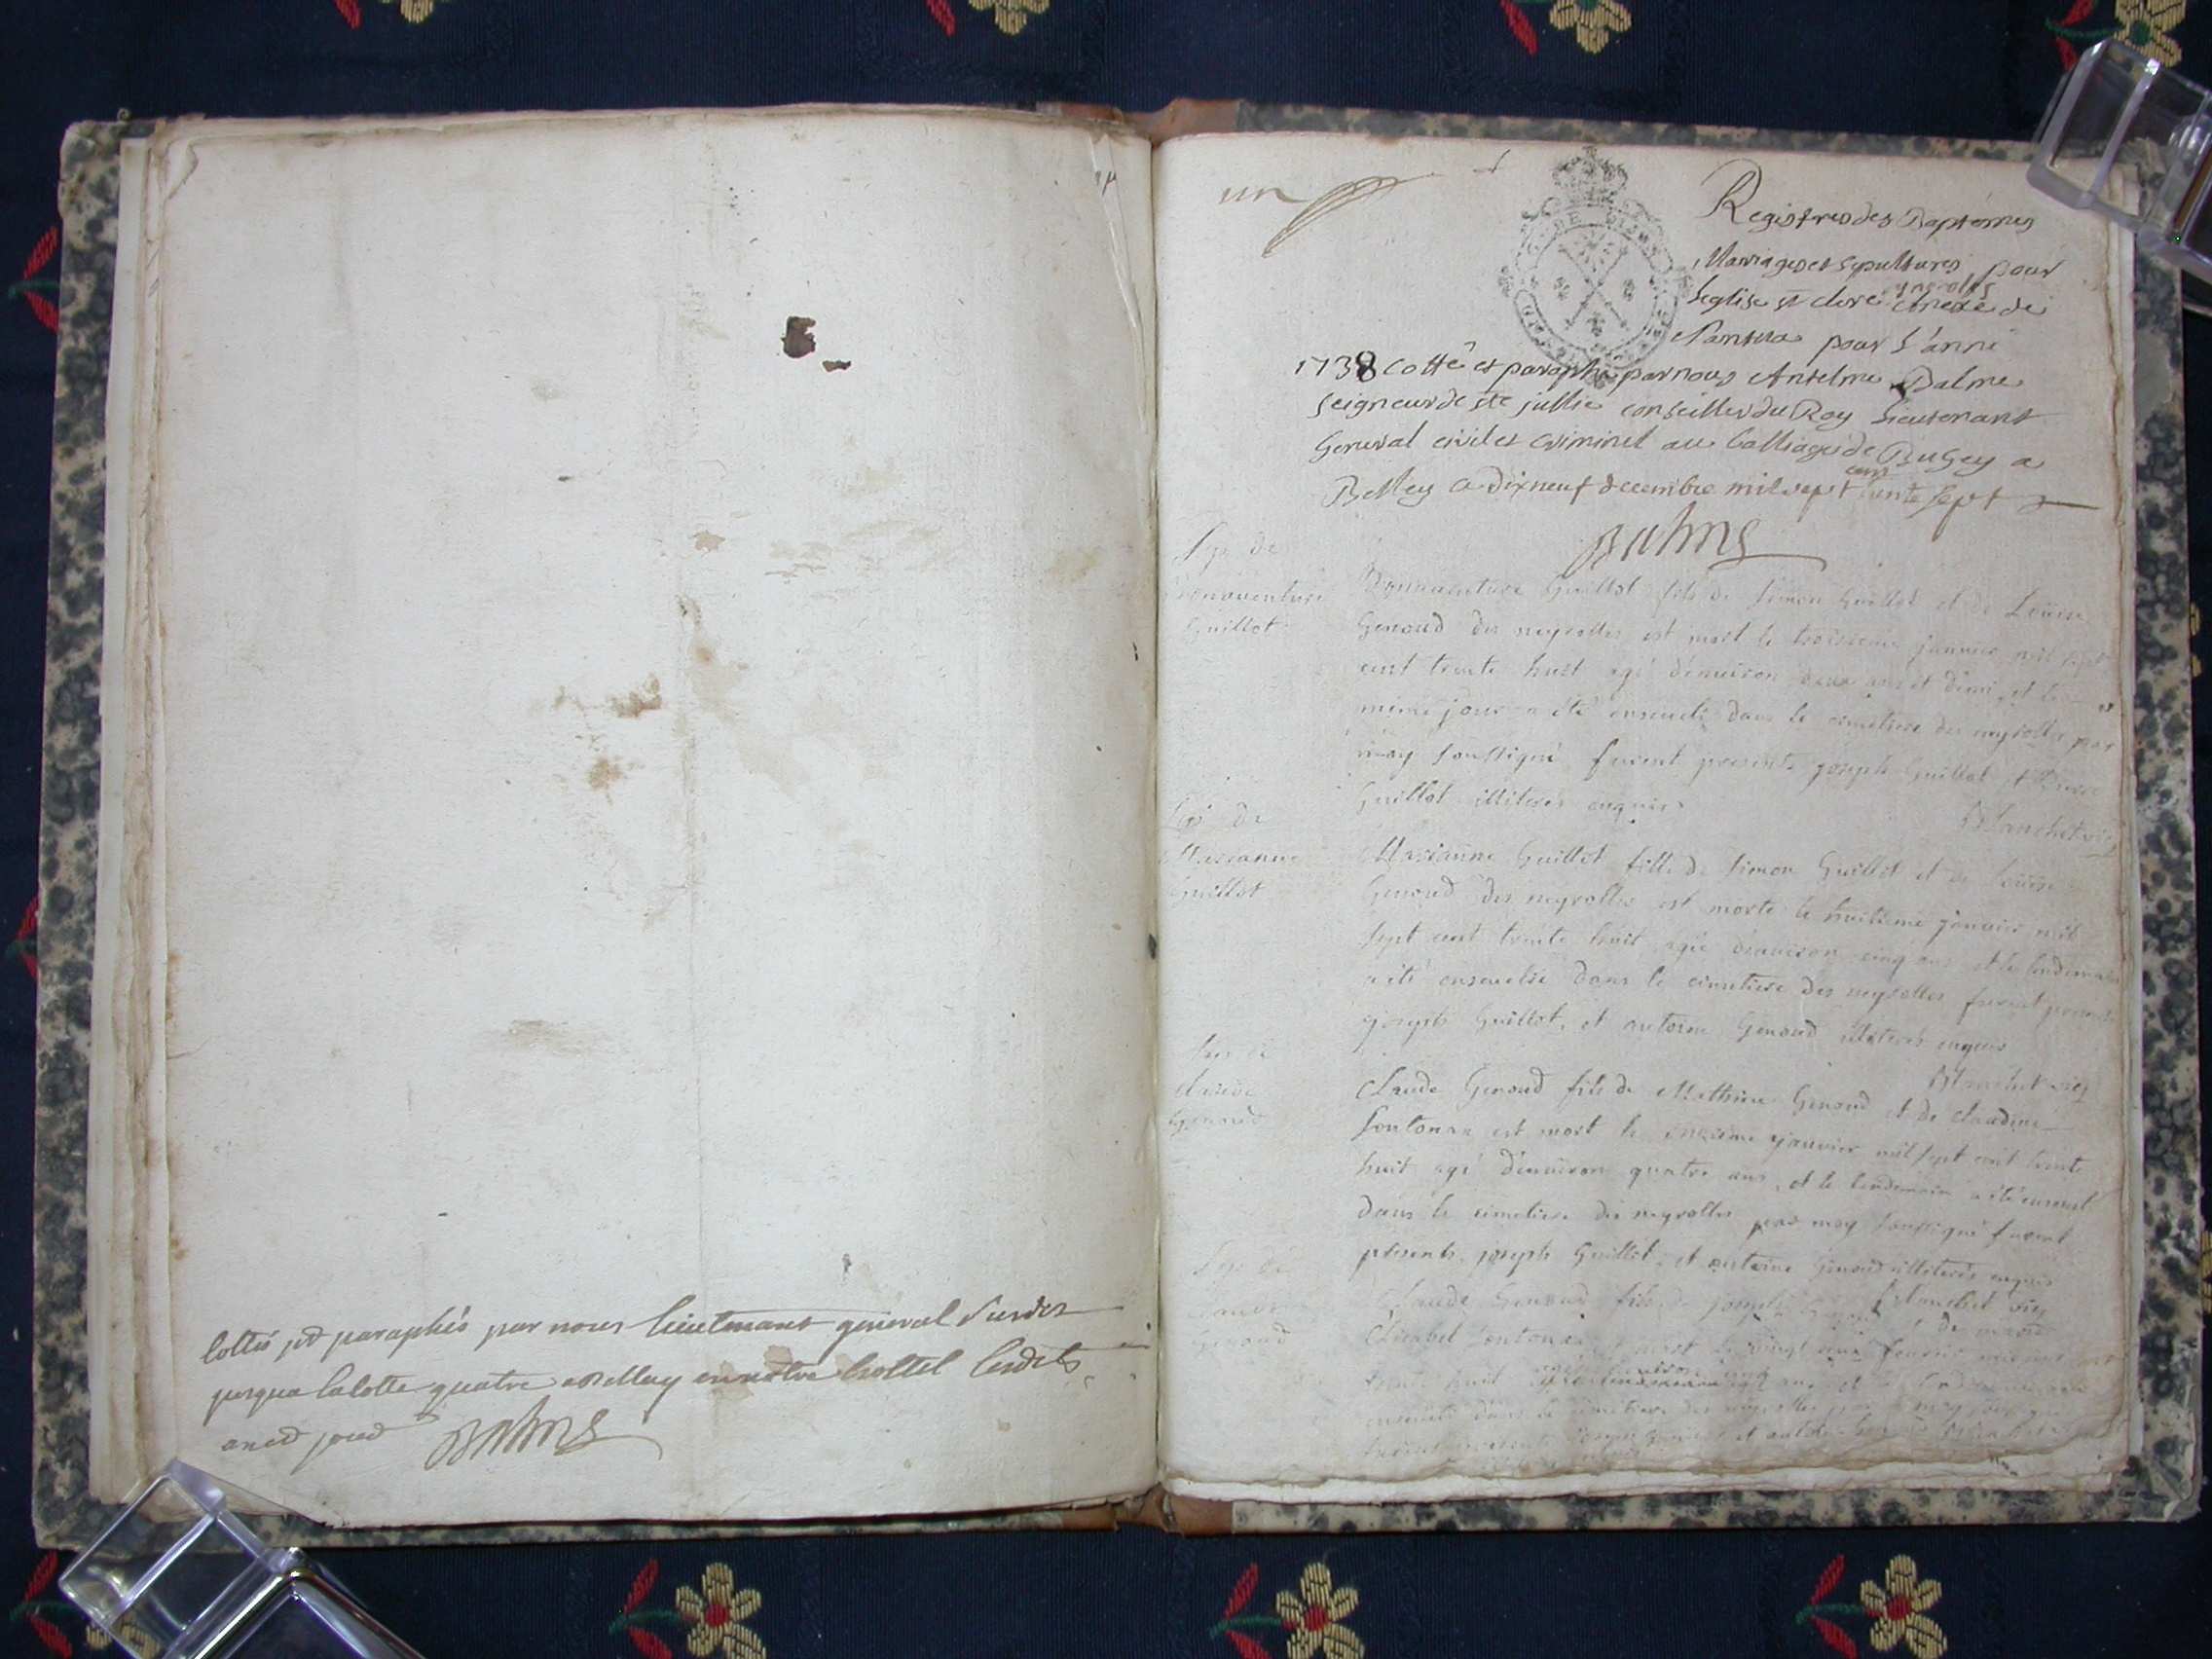 Cottés et paraphés par nous lieutenant general susdit
jusqua la cotte quatre a Belley en notre hottel lesdits
an et jour
Balme
un
Registres des Baptémes
Mariages et sepultures, pour
leglise st clere neyrolles annexe de
Nantua pour l'anné
1738 cotté et paraphé par nous Anselme Balme
seigneur de ste jullie conseiller du Roy lieutenant
General civil et criminel au balliage de Bugey a
Belley a dixneuf decembre mil sept cent trente sept
Balme
Sep. de
Bonnaventure
Guillot
Bonnaventure Guillot fils de Simon Guillot et de Louise
Genoud des neyrolles est mort le troisieme janvier mil sept
cent trente huit agé d'environ deux ans et demi, et le
méme jour a été enseveli dans le cimetiere des neyrolles par
moy soussigné furent presents joseph Guillot et
Guillot illiterés enquis
Blanchet vic
Sep. de
Marianne
Guillot
Marianne Guillot fille de Simon Guillot et de Louise
Genoud des neyrolles est morte le huitieme janvier mil
sept cent trente huit agée d'environ cinq ans et le lendemain
a été ensevelie dans le cimetiere des neyrolles furent presents
joseph Guillot, et antoine Genoud illiterés enquis
Blanchet vic
Sep. de
Claude
Genoud
Claude Genoud fils de Mathieu Genoud et de claudine
Santonax est mort le onzieme janvier mil sept cent trente
huit agé d'environ quatre ans, et le lendemain a été enseveli
dans le cimetiere des neyrolles par moy soussigné furent
présents joseph Guillot, et antoine Genoud illiterés enquis
Blanchet vic
Sep. de
Claude
Genoud
Claude Genoud fils de joseph Genoud et de marie
Elizabet Santonax est mort le vingt fevrier mil sept cent
trente huit agé d'environ cinq ans et le lendemain a été
enseveli dans le cimetiere des neyrolles par moy soussigné
furent presents Genoud et antoine